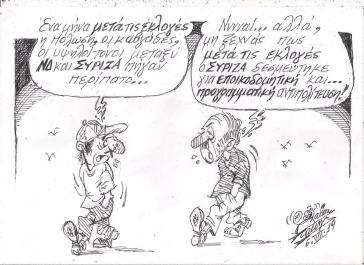 Ένα μήνα μετά τις εκλογές
η πόλωση, οι καβγάδες,
οι υψηλοί τόνοι μεταξύ
ΝΔ και ΣΥΡΙΖΑ πήγαν
περίπατο...
Νννναι... αλλά,
μη ξεχνάς πως
μετά τις εκλογές
ο ΣΥΡΙΖΑ δεσμεύτηκε
για εποικοδομητική και...
προγραμματική αντιπολίτευση!